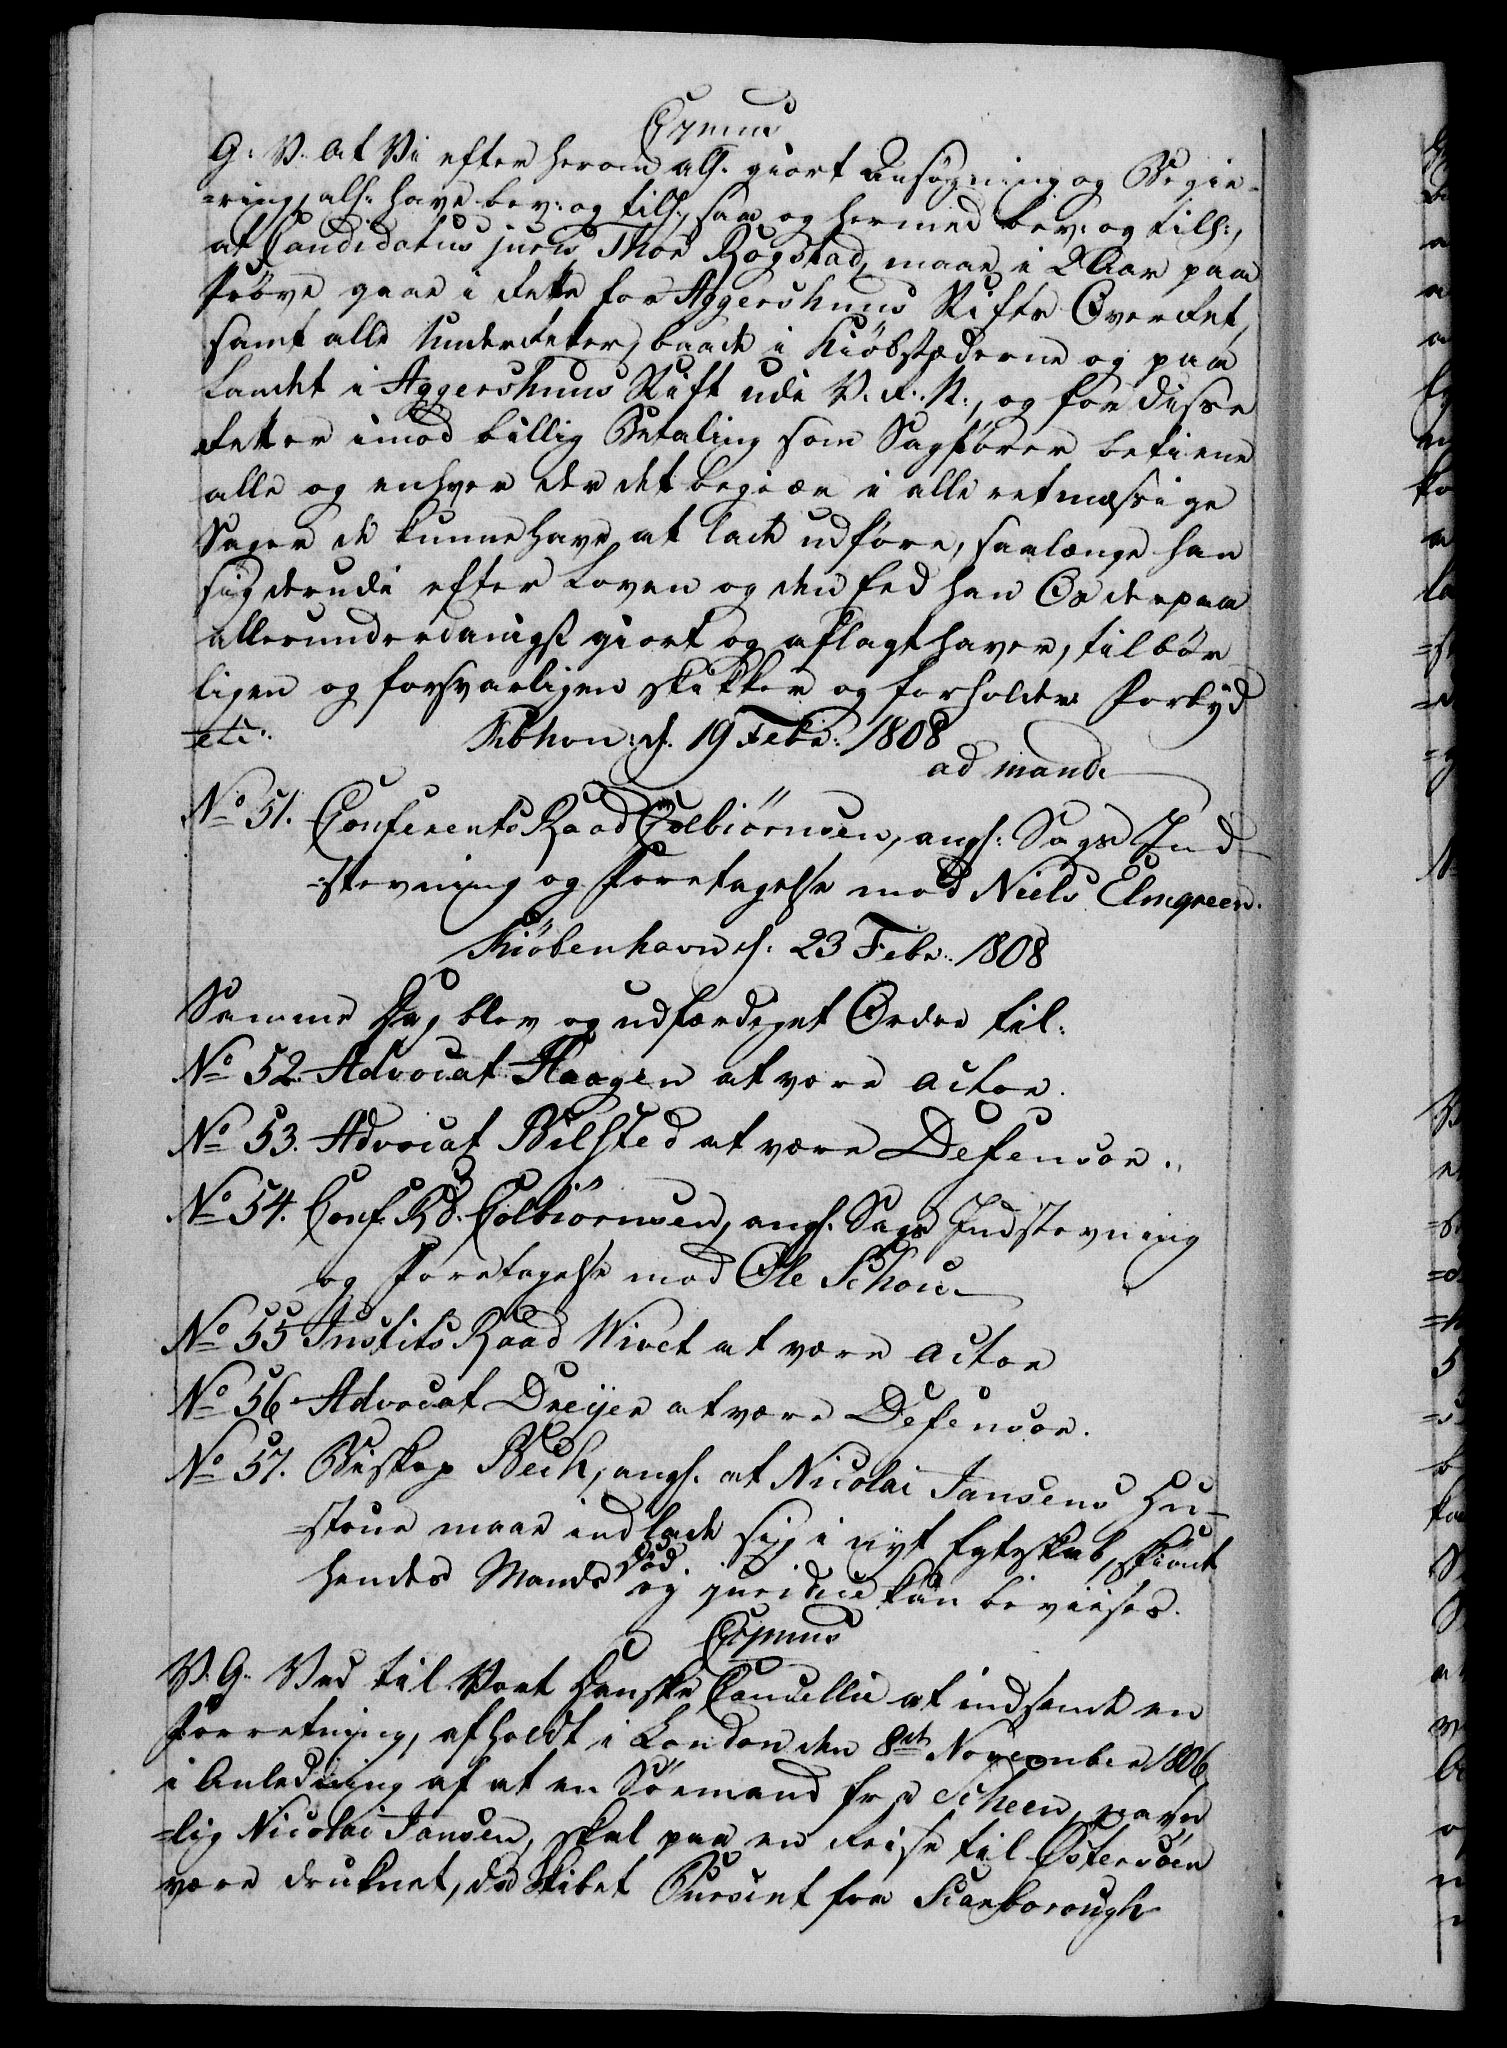 C7mus
G: V: At Vi efter herom all: giort Ansøgning og Begie-
=ring, all: have bev: og till:, saa og hermed bev: og till:,
at Candidatus juris Thor Rogstad, maae i 2 Aar paa
Prøve gaae i Rette for Aggershuus Stifts Overret,
samt alle Underretter, baade i Kiöbstæderne og paa
Landet i Aggershuus Stift udi V. R: N:, og for disse
Retter imod billig Betaling som Sagfører betiene
alle og enhver der det begiær i alle retmæssige
Sager de kunne have at lade udføre, saalænge han
sig derudi efter Loven og den Eed han Os derpaa
allerunderdanigst giort og aflagt haver, tilbør
ligen og forsvarligen skikker og forholder Forbyd
=etc. Kbhvn: d. 19 Febr: 1808
ad mand.
No 51. Conferents Raad Colbiörnsen, angl: Sags Ind
=stevning og Foretagelse mod Niels Elmgreen.
Kiöbenhavn d: 23 Febr: 1808
Samme Dag blev og udfærdiget Ordre til:
No 52. Advocat Haagen at være Actor.
No 53. Advocat Bilsted at være Defensor.
No 54. Conf. Rd. Colbiörnsen, angl. Sags Indstevning
og Foretagelse mod Ole Schou.
No 55 Justits Raad Wivet at være Actor
No 56 Advocat Dreijer at være Defensor.
No 57. Biskop Bech, angl. at Nicolai Jansens Hu-
=stroe maae indlade sig i nyt Egteskab, skiönt
hendes Mands Död ej juridice kan bevises.
C7mus
V. G. Ved til Vort Danske Cancellie at indsende en
Forretning, afholdt i London den 8de November 1806,
i Anledning af at en Söemand fra Scheen, navn
=lig Nicolai Jansen, skal paa en Reise til Østersöen
være druknet, da Skibet Pursuit fra Scarborough